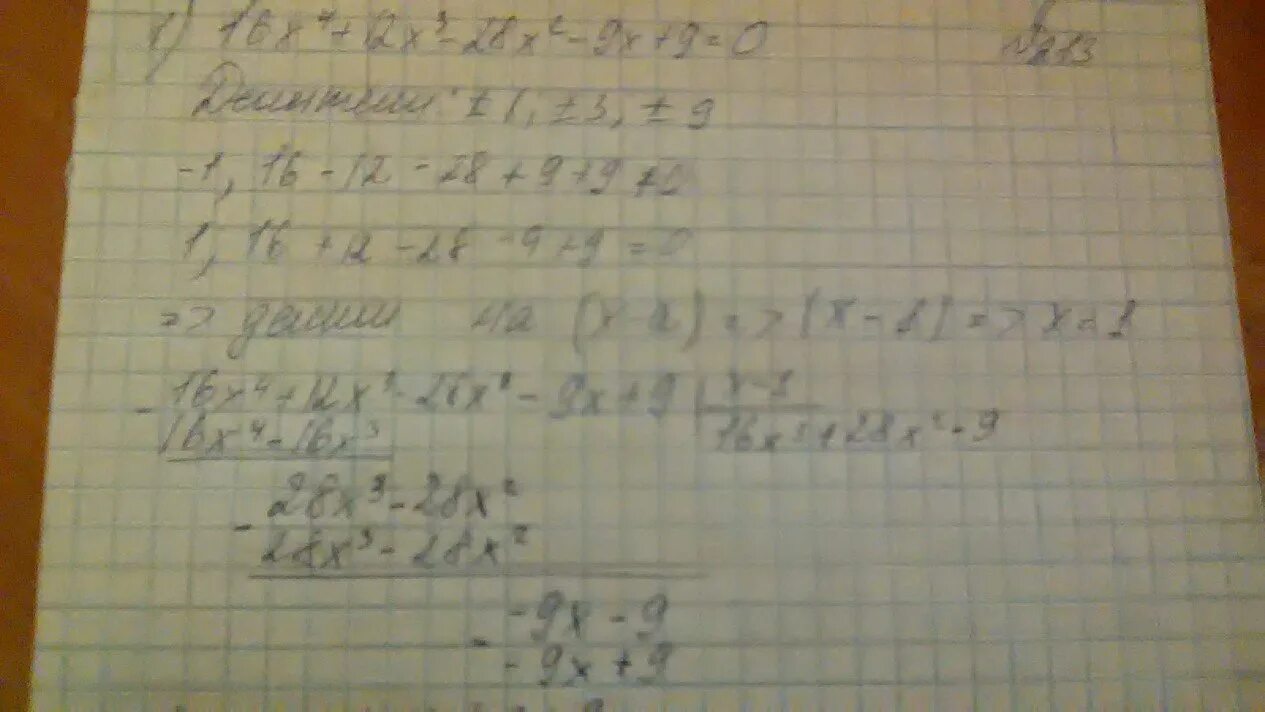 г) 16x⁴+12x³-28x²-9x+9=0 №213
Делители: ±1, ±3, ±9
-1, 16-12-28+9+9≠0
1, 16+12-28-9+9=0
=> делим на (x-a) => (x-1) => x=1
- 16x⁴+12x³-28x²-9x+9 | x-1
16x⁴-16x³ 16x³+28x²-9
- 28x³-28x²
28x³-28x²
- -9x-9
-9x+9